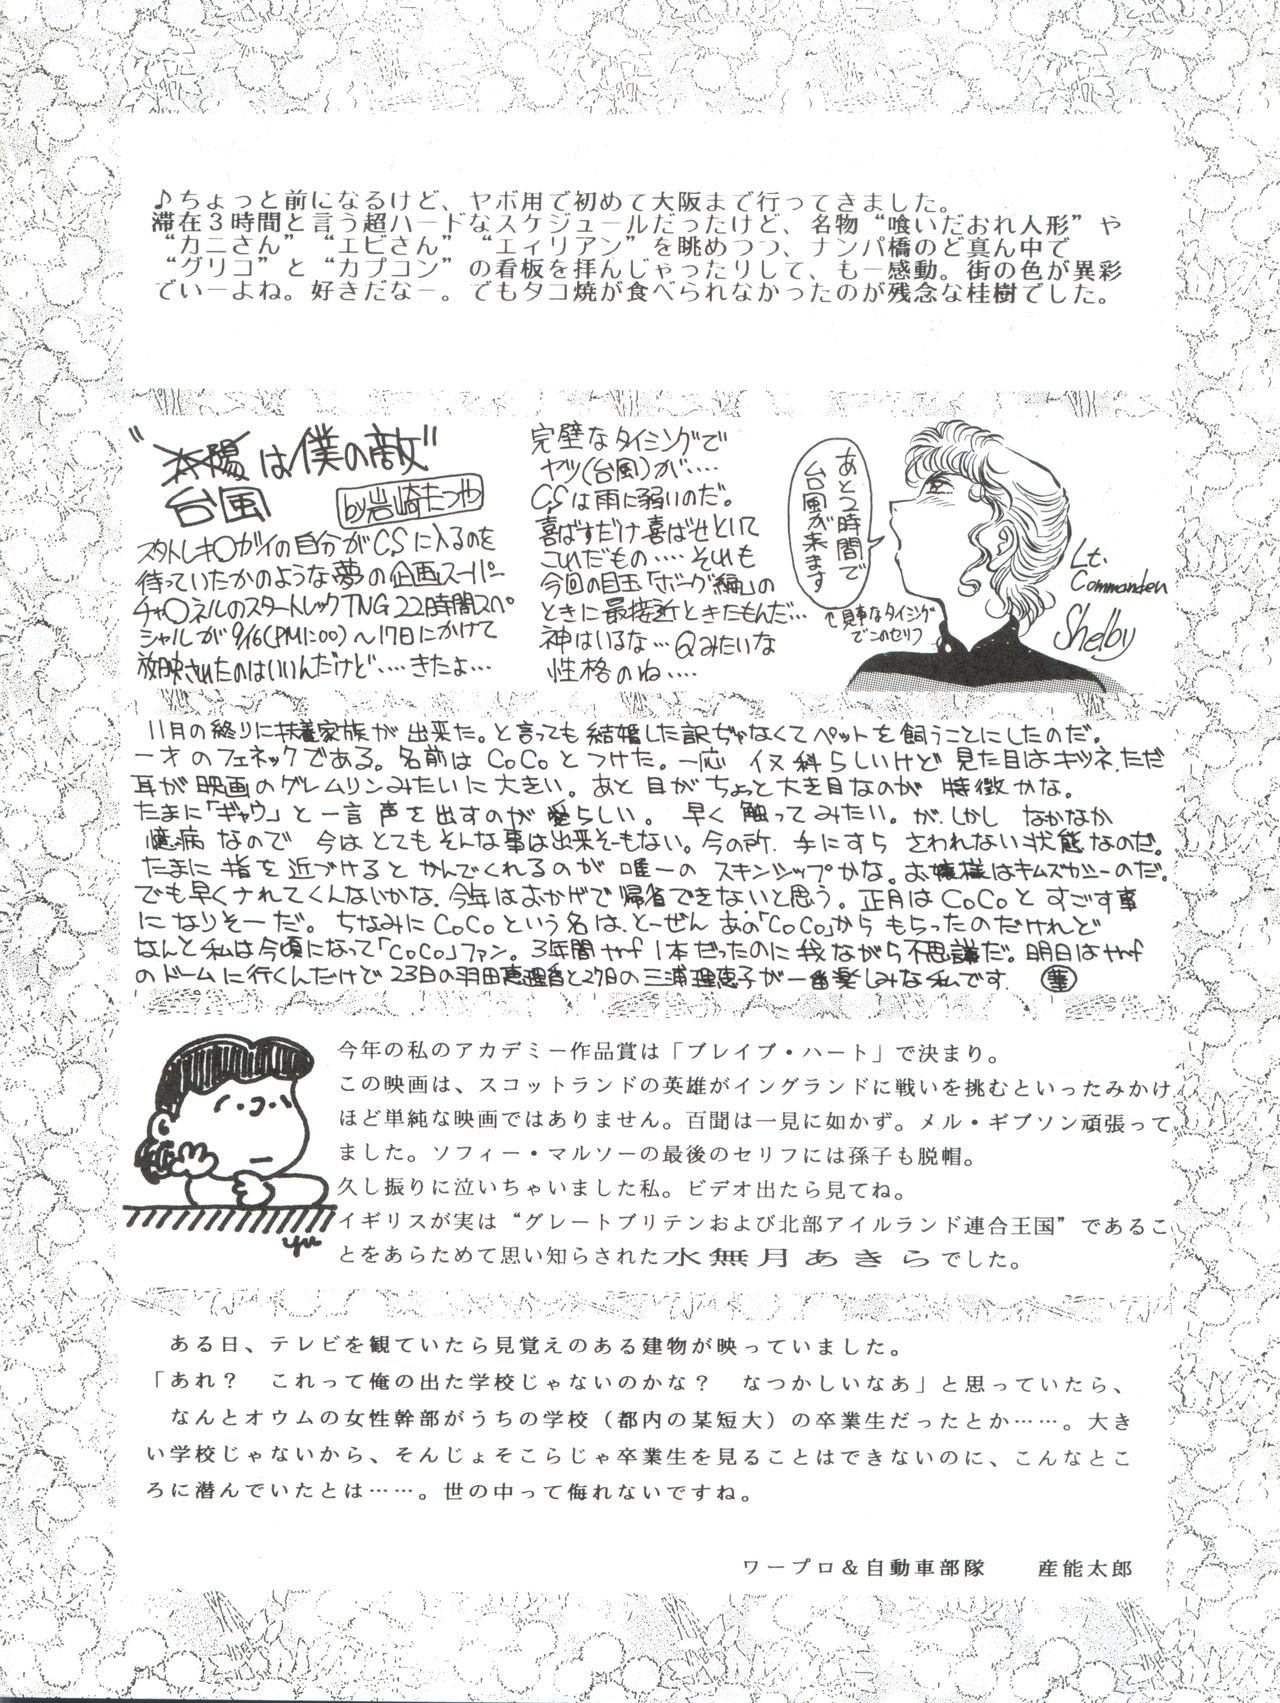 ♪ちょっと前になるけど、ヤボ用で初めて大阪まで行ってきました。
滞在3時間と言う超ハードなスケジュールだったけど、名物“喰いだおれ人形”や
“カニさん”“エビさん”“エィリアン”を眺めつつ、ナンパ橋のど真ん中で
“グリコ”と“カプコン”の看板を拝んじゃったりして、も一感動。街の色が異彩
でいーよね。好きだなー。でもタコ焼が食べられなかったのが残念な桂樹でした。
“太陽は僕の敵”
台風
by岩崎たつや
スタトレキ○ガイの自分がCSに入るのを
待っていたかのような夢の企画スーパー
チャ○ネルのスタートレックTNG22時間スペ
シャルが9/16(PM1:00)～17日にかけて
放映されたのはいいんだけど‥‥きたよ‥‥
完璧なタイミングで
ヤツ(台風)が‥‥
CSは雨に弱いのだ。
喜ばすだけ喜ばせといて
これだもの‥‥それも
今回の目玉「ボーグ編」の
ときに最接近ときたもんだ‥‥
神はいるな‥‥Qみたいな
性格のね‥‥
あと2時間で
台風が来ます
↑見事なタイミング
でこのセリフ
Lt.
Commander
Shelby
11月の終りに扶養家族が出来た。と言っても結婚した訳ぢゃなくてペットを飼うことにしたのだ。
一才のフェネックである。名前はCoCoとつけた。一応イヌ科らしいけど見た目はキツネ、ただ
耳が映画のグレムリンみたいに大きい。あと目がちょっと大き目なのが特徴かな。
たまに「ギャウ」と一言声を出すのが愛らしい。早く触ってみたい。が、しかしなかなか
憶病なので今はとてもそんな事は出来そーもない。今の所、手にすらさわれない状態なのだ。
たまに指を近づけるとかんでくれるのが唯一のスキンシップかな。お嬢様はキムズカシーのだ。
でも早くなれてくんないかな、今年はおかげで帰省できないと思う。正月はCoCoとすごす事
になりそーだ。ちなみにCoCoという名は、とーぜんあの「CoCo」からもらったのだけれど
なんと私は今頃になって「CoCo」ファン。3年間ribbon1本だったのに我ながら不思議だ。明日は
のドームに行くんだけど23日の羽田恵理香と27日の三浦理恵子が一番楽しみな私です。
今年の私のアカデミー作品賞は「ブレイブ・ハート」で決まり。
この映画は、スコットランドの英雄がイングランドに戦いを挑むといったみかけ
ほど単純な映画ではありません。百聞は一見に如かず。メル・ギブソン頑張って
ました。ソフィー・マルソーの最後のセリフには孫子も脱帽。
久し振りに泣いちゃいました私。ビデオ出たら見てね。
イギリスが実は“グレートブリテンおよび北部アイルランド連合王国”であるこ
とをあらためて思い知らされた水無月あきらでした。
yu
ある日、テレビを観ていたら見覚えのある建物が映っていました。
「あれ？　これって俺の出た学校じゃないのかな？　なつかしいなあ」と思っていたら、
なんとオウムの女性幹部がうちの学校（都内の某短大）の卒業生だったとか……。大き
い学校じゃないから、そんじょそこらじゃ卒業生を見ることはできないのに、こんなとこ
ろに潜んでいたとは……。世の中って侮れないですね。
ワープロ＆自動車部隊　　産能太郎